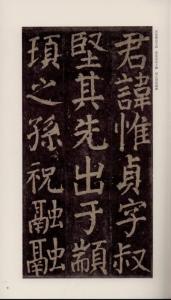 君諱惟貞字叔
堅其先出于顓
頊之孫祝融融